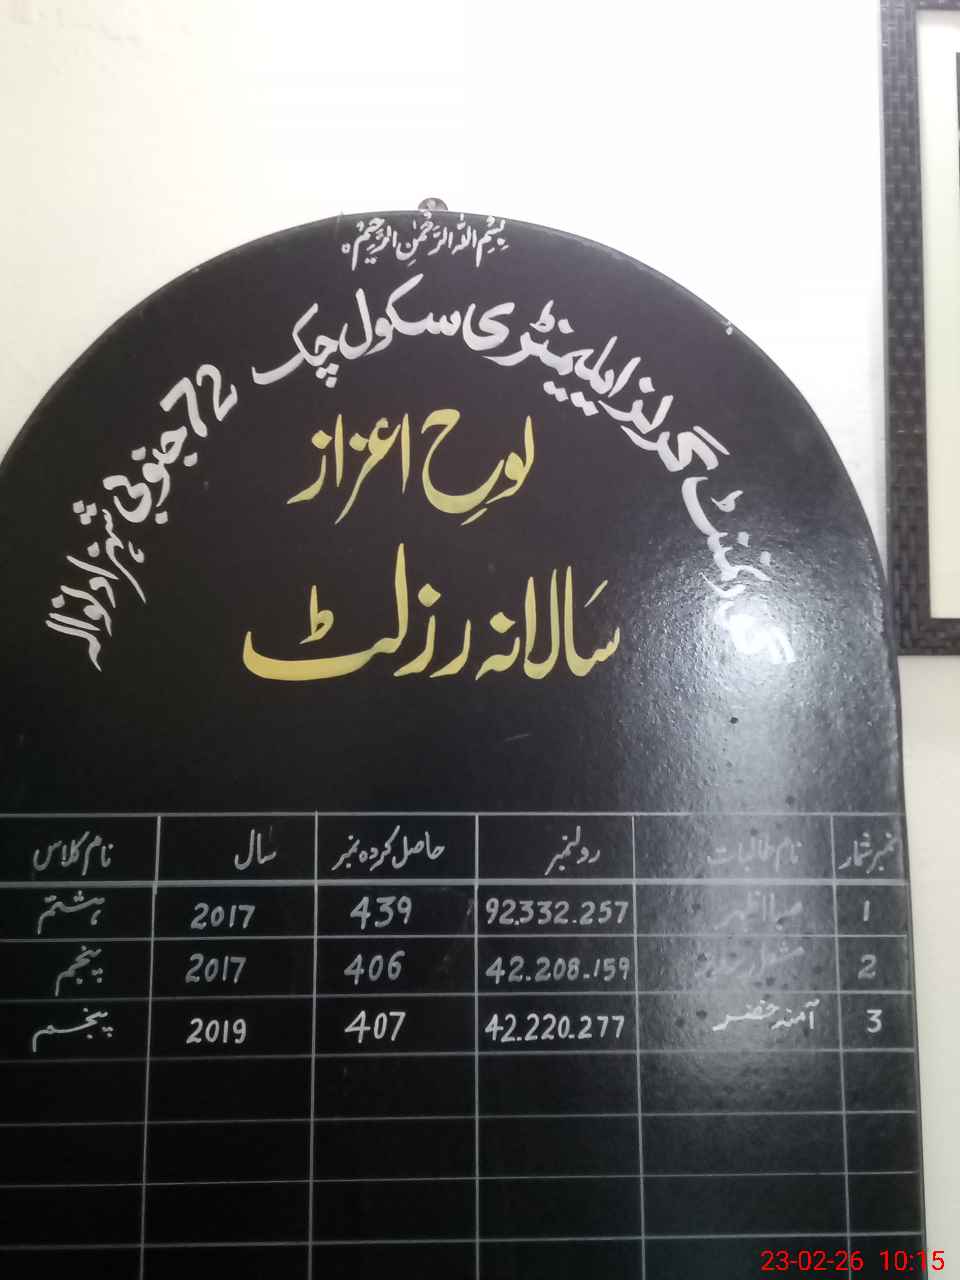 بِسْمِ اللهِ الرَّحْمٰنِ الرَّحِيْمِ
گورنمنٹ گرلز ایلیمنٹری سکول چک 72 جنوبی شہزادنوالہ
لوحِ اعزاز
سالانہ رزلٹ
نمبر شمار نام طالبات رولنمبر حاصل کردہ نمبر سال نام کلاس
1 92.332.257 439 2017 ہشتم
2 42.208.159 406 2017 پنجم
3 آمنہ خضر 42.220.277 407 2019 پنجم
23-02-26 10:15